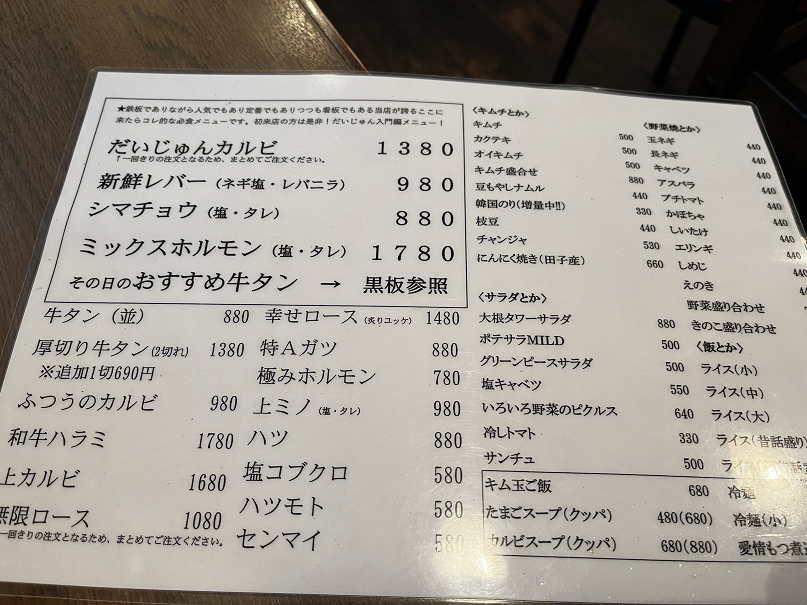 ★鉄板でありながら人気でもあり定番でもありつつも看板でもある当店が誇るここに
来たらコレ的な必食メニューです。初来店の方は是非！だいじゅん入門編メニュー！
だいじゅんカルビ 1380
↑一回きりの注文となるため、まとめてご注文ください。
新鮮レバー（ネギ塩・レバニラ） 980
シマチョウ（塩・タレ） 880
ミックスホルモン（塩・タレ） 1780
その日のおすすめ牛タン → 黒板参照
牛タン（並） 880
厚切り牛タン(2切れ) 1380
※追加1切690円
ふつうのカルビ 980
和牛ハラミ 1780
上カルビ 1680
無限ロース 1080
一回きりの注文となるため、まとめてご注文ください。
幸せロース（炙りユッケ） 1480
特Aガツ 880
極みホルモン 780
上ミノ（塩・タレ） 980
ハツ 880
塩コブクロ 580
ハツモト 580
センマイ 580
〈キムチとか〉
キムチ 500
カクテキ 500
オイキムチ 500
キムチ盛合せ 880
豆もやしナムル 440
韓国のり(増量中!!) 330
枝豆 440
チャンジャ 530
にんにく焼き(田子産) 660
〈サラダとか〉
大根タワーサラダ 880
ポテサラMILD 500
グリーンピースサラダ 500
塩キャベツ 550
いろいろ野菜のピクルス 640
冷しトマト 330
サンチュ 500
キム玉ご飯 680
たまごスープ(クッパ) 480(680)
カルビスープ(クッパ) 680(880)
〈野菜焼とか〉
玉ネギ 440
長ネギ 440
キャベツ 440
アスパラ 440
プチトマト 440
かぼちゃ 440
しいたけ 440
エリンギ 440
しめじ
えのき
野菜盛り合わせ
きのこ盛り合わせ
〈飯とか〉
ライス(小)
ライス(中)
ライス(大)
ライス(昔話盛り)
冷麺
冷麺(小)
愛情もつ煮込